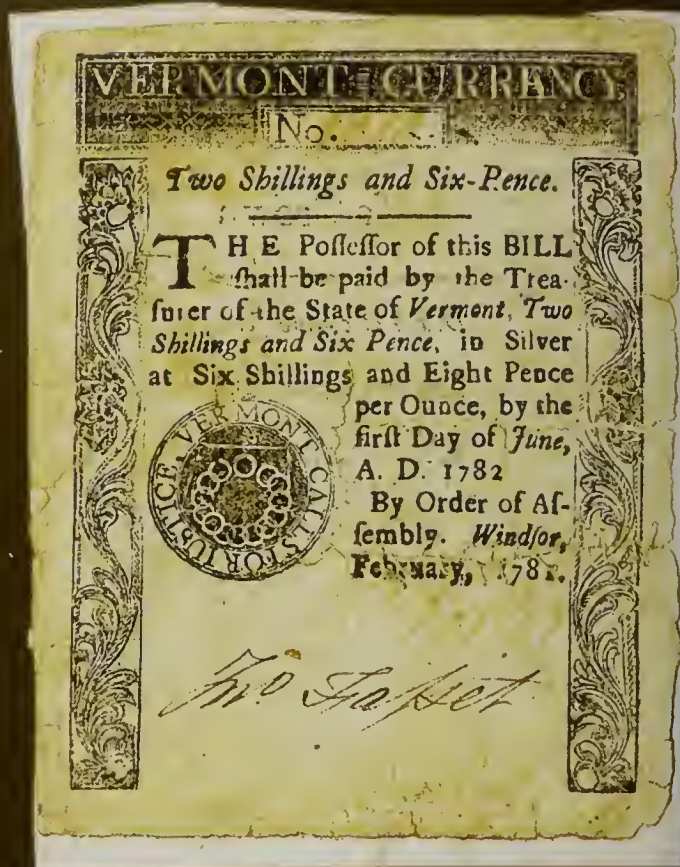 VERMONT CURRENCY.
No.
Two Shillings and Six-Pence.
THE Poſſeſſor of this BILL
ſhall be paid by the Trea-
ſurer of the State of Vermont, Two
Shillings and Six Pence, in Silver
at Six Shillings and Eight Pence
per Ounce, by the
firſt Day of June,
A. D. 1782
By Order of Aſ-
ſembly. Windſor,
February, 1781.
VERMONT CALLS FOR JUSTICE.
Jnº Faſset